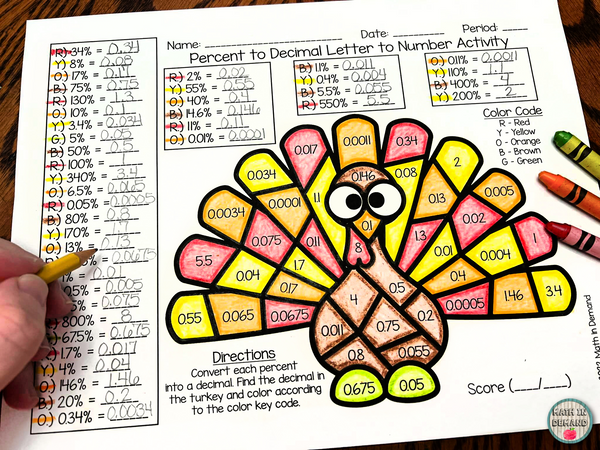 Name:
Date:
Period:
Percent to Decimal Letter to Number Activity
R) 34% = 0.34
Y) 8% = 0.08
O) 17% = 0.17
B) 75% = 0.75
R) 130% = 1.3
O) 10% = 0.1
Y) 3.4% = 0.034
G) 5% = 0.05
B) 50% = 0.5
R) 100% = 1
Y) 340% = 3.4
O) 6.5% = 0.065
R) 0.05% = 0.0005
B) 80% = 0.8
Y) 170% = 1.7
O) 13% = 0.13
5% = 0.0675
1% = 0.01
0.5% = 0.005
0.075
800% = 8
67.5% = 0.675
R) 1.7% = 0.017
Y) 4% = 0.04
O) 146% = 1.46
B) 20% = 0.2
O) 0.34% = 0.0034
R) 2% = 0.02
Y) 55% = 0.55
O) 40% = 0.4
B) 14.6% = 0.146
R) 11% = 0.11
O) 0.01% = 0.0001
B) 1.1% = 0.011
Y) 0.4% = 0.004
B) 5.5% = 0.055
R) 550% = 5.5
O) 0.11% = 0.0011
Y) 110% = 1.1
B) 400% = 4
Y) 200% = 2
Color Code
R - Red
Y - Yellow
O - Orange
B - Brown
G - Green
0.017
0.0011
0.34
0.034
0.146
0.08
2
0.0034
0.0001
1.1
0.13
0.005
0.075
0.11
0.1
1.3
0.02
5.5
0.04
1.7
8
0.01
0.004
1
0.17
0.4
0.55
0.065
0.0675
4
0.5
0.0005
1.46
3.4
0.011
0.75
0.2
0.8
0.055
0.675
0.05
Directions
Convert each percent
into a decimal. Find the decimal in
the turkey and color according
to the color key code.
Score (___/___)
Math in Demand
MATH IN
DEMAND